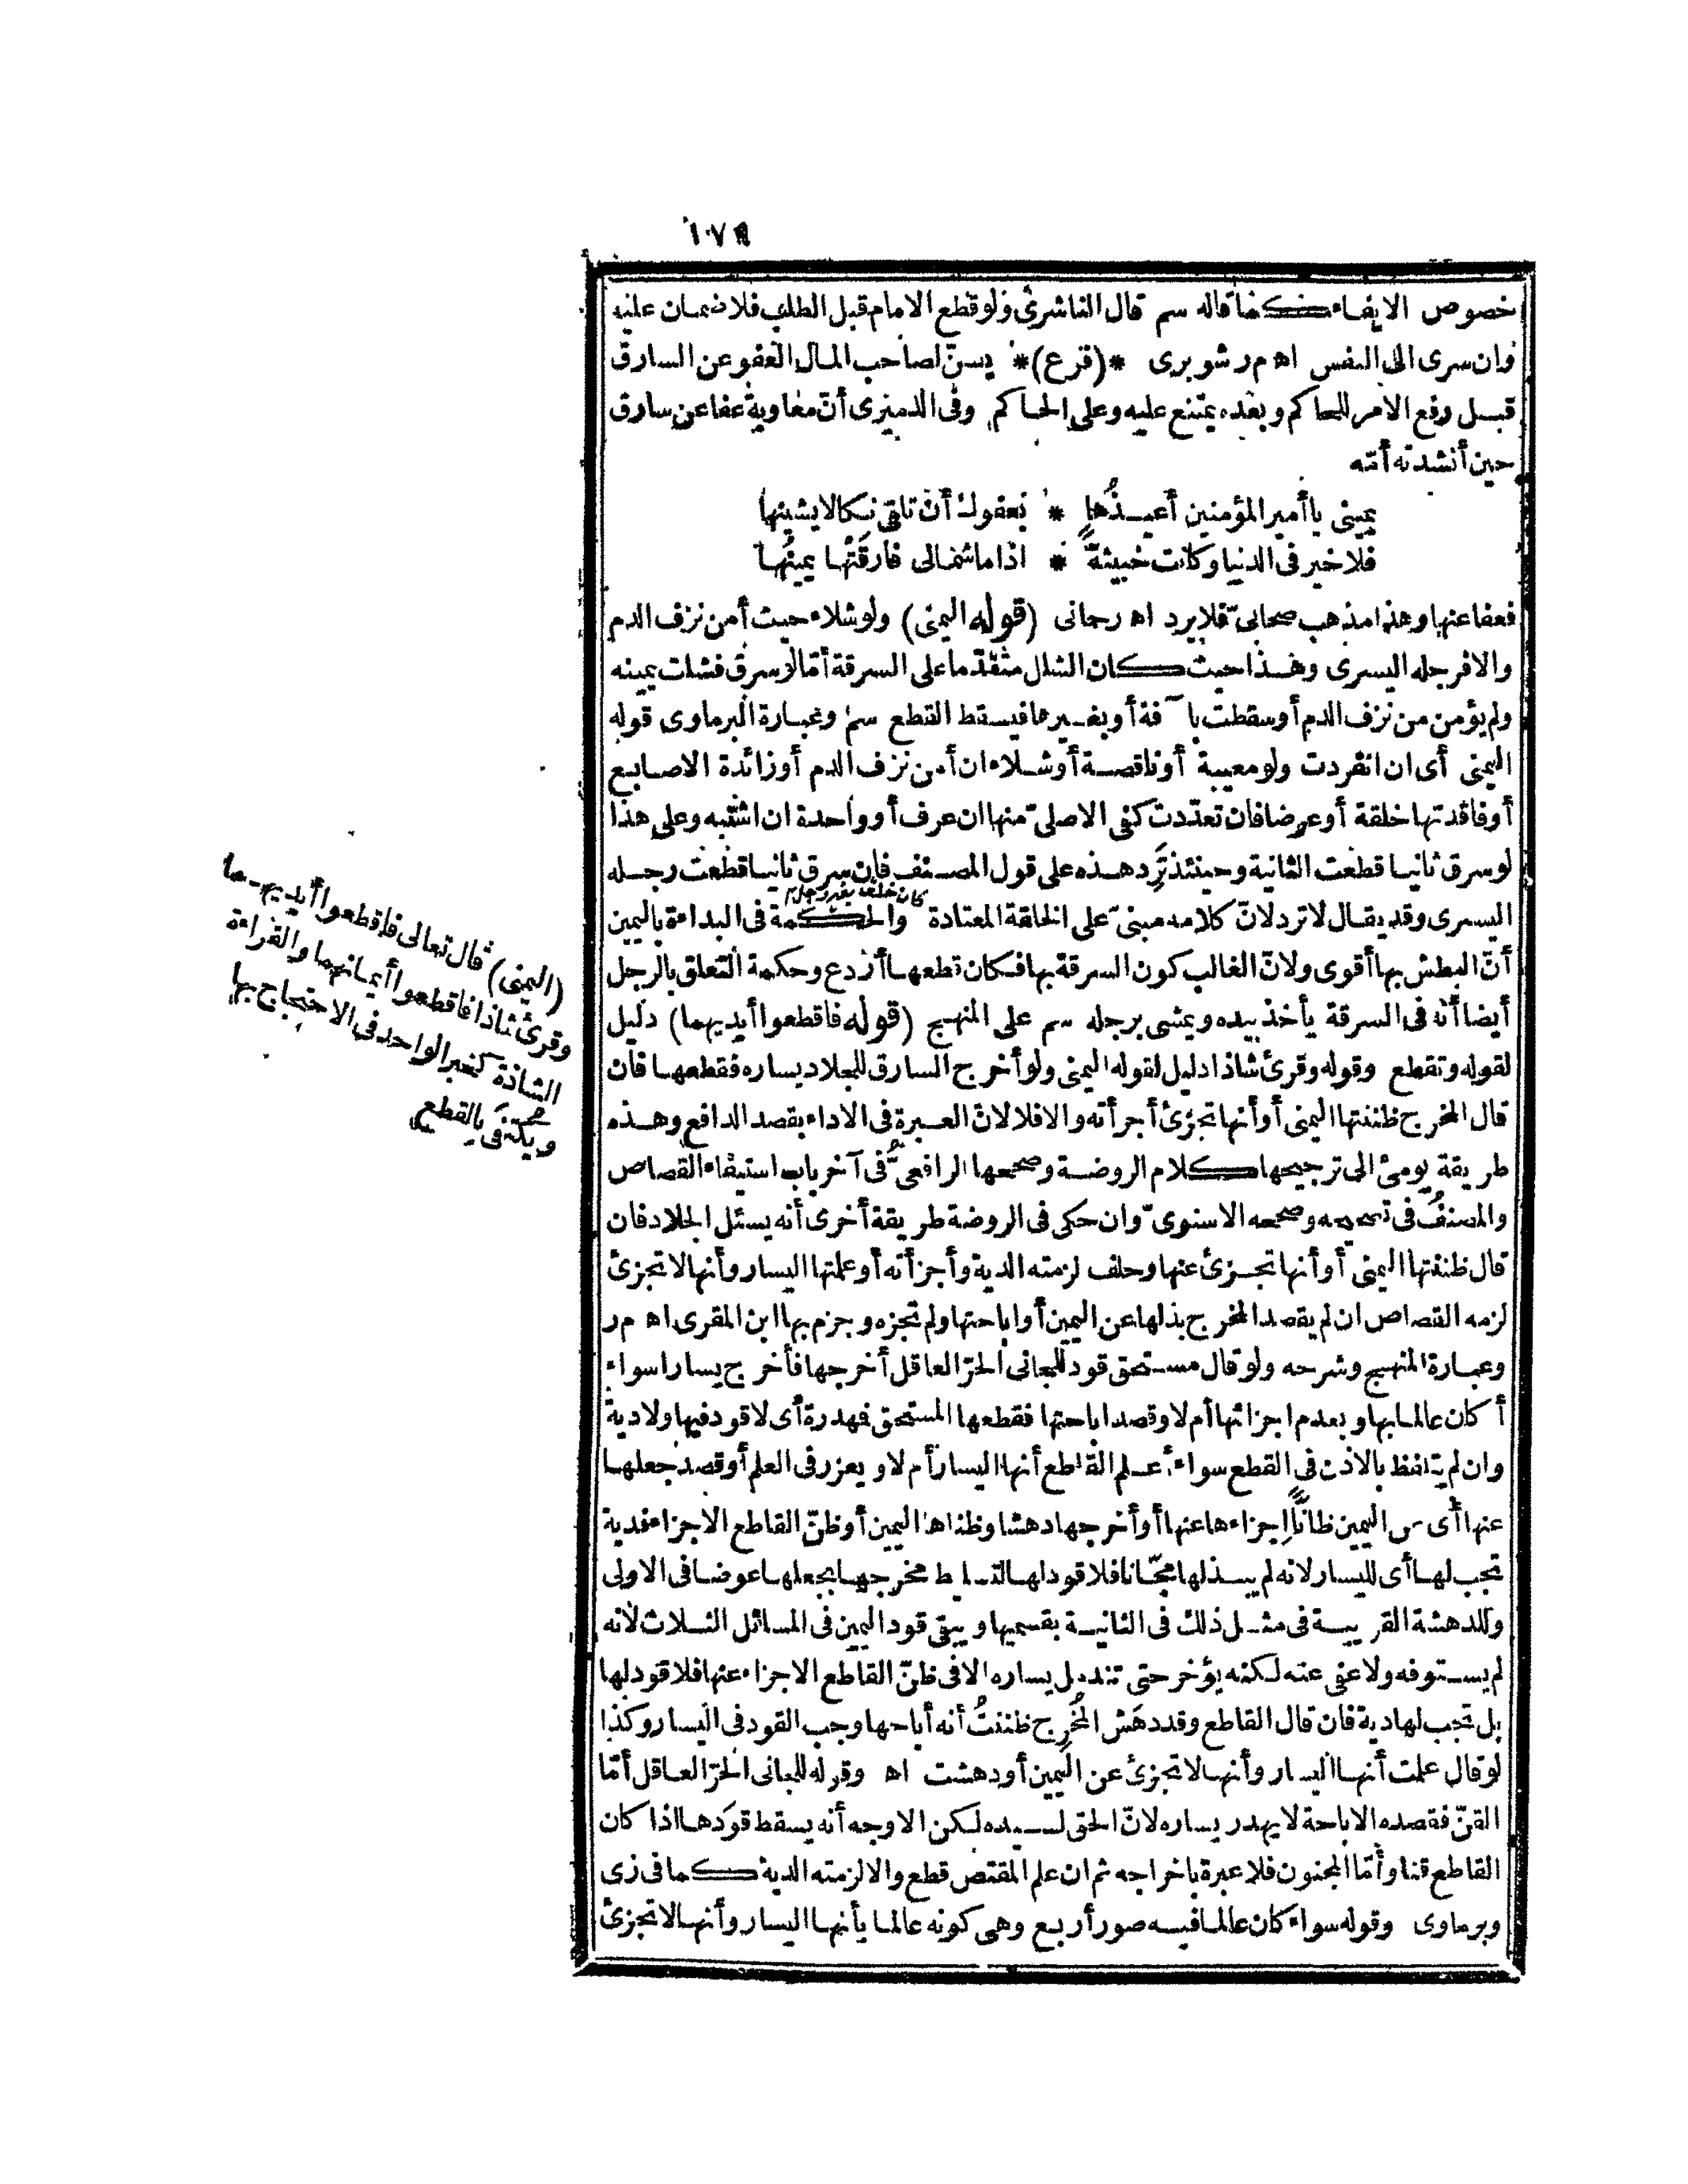 ١٧٩
خصوص الايفاء كما قاله سم قال الناشرى ولو قطع الامام قبل الطلب فلا ضمان عليه
وان سرى الى النفس اه م ر شوبرى *(فرع)* يسنّ لصاحب المال العفو عن السارق
قبل رفع الامر للحاكم وبعده يمتنع عليه وعلى الحاكم وفى الدميرى أنّ معاوية عفا عن سارق
حين أنشدته أمّه
يمينى يا أمير المؤمنين أعيذُها * بعفوك أن تلقى نكالا يشينها
فلا خير فى الدنيا وكانت خبيثةً * اذا ما شمالى فارقَتْها يمينُها
فعفا عنها وهذا مذهب صحابىّ فلا يرد اه رحمانى (قوله اليمنى) ولو شلاء حيث أمن نزف الدم
والا فرجله اليسرى وهذا حيث كان الشلل متقدّما على السرقة أمّا لو سرق فشلت يمينه
ولم يؤمن من نزف الدم أو سقطت بآفة أو بغيرها فيسقط القطع سم وعبارة البرماوى قوله
اليمنى أى ان انفردت ولو معيبة أو ناقصة أو شلاء ان أمن نزف الدم أو زائدة الاصابع
أو فاقدتها خلقة أو عرضا فان تعدّدت كفى الاصلىّ منها ان عرف أو واحدة ان اشتبه وعلى هذا
لو سرق ثانيا قطعت الثانية وحينئذ تَرِد هذه على قول المصنف فان سرق ثانيا قطعت رجله
اليسرى وقد يقال لا ترد لانّ كلامه مبنىّ على الخلقة المعتادة والحكمة فى البداءة باليمين
أنّ البطش بها أقوى ولانّ الغالب كون السرقة بها فكان قطعها أردع وحكمة التعلق بالرجل
أيضا أنه فى السرقة يأخذ بيده ويمشى برجله سم على المنهج (قوله فاقطعوا أيديهما) دليل
لقوله وتقطع وقوله وقرئ شاذا دليل لقوله اليمنى ولو أخرج السارق للجلاد يساره فقطعها فان
قال المخرج ظننتها اليمنى أو أنها تجزئ أجزأته والا فلا لانّ العبرة فى الاداء بقصد الدافع وهذه
طريقة يومئ الى ترجيحها كلام الروضة وصححها الرافعىّ فى آخر باب استيفاء القصاص
والمصنفُ فى تصحيحه وصححه الاسنوىّ وان حكى فى الروضة طريقة أخرى أنه يسئل الجلاد فان
قال ظننتها اليمنى أو أنها تجزئ عنها وحلف لزمته الدية وأجزأته أو علمتها اليسار وأنها لا تجزئ
لزمه القصاص ان لم يقصد المخرج بذلها عن اليمين أو اباحتها ولم تجزه وجزم بها ابن المقرى اه م ر
وعبارة المنهج وشرحه ولو قال مستحق قود للجانى الحرّ العاقل أخرجها فأخرج يسارا سواء
أكان عالما بها وبعدم اجزائها أم لا وقصد اباحتها فقطعها المستحق فهدرة أى لا قود فيها ولا دية
وان لم يتلفظ بالاذن فى القطع سواء أعلم القاطع أنها اليسار أم لا ويعزر فى العلم أو قصد جعلها
عنها أى عن اليمين ظانًّا إجزاءها عنها أو أخرجها دهشا وظناها اليمين أو ظنّ القاطع الاجزاء فدية
تجب لها أى لليسار لانه لم يبذلها مجّانا فلا قود لها لتسليط مخرجها بجعلها عوضا فى الاولى
وللدهشة القريبة فى مثل ذلك فى الثانية بقسميها ويبقى قود اليمين فى المسائل الثلاث لأنه
لم يستوفه ولا عفى عنه لكنه يؤخر حتى تندمل يساره الا فى ظنّ القاطع الاجزاء عنها فلا قود لها
بل تجب لها دية فان قال القاطع وقد دهَش المُخرِج ظننتُ أنه أباحها وجب القود فى اليسار وكذا
لو قال علمت أنها اليسار وأنها لا تجزئ عن اليمين أو دهشت اه وقوله للجانى الحرّ العاقل أمّا
القنّ فقصده الاباحة لا يهدر يساره لانّ الحق لسيده لكن الاوجه أنه يسقط قوَدها اذا كان
القاطع قنا وأمّا المجنون فلا عبرة باخراجه ثم ان علم المقتص قطع والا لزمته الدية كما فى زى
وبرماوى وقوله سواء كان عالما فيه صور أربع وهى كونه عالما بأنها اليسار وأنها لا تجزئ
(اليمنى) قال تعالى فاقطعوا أيديهما
وقرئ شاذا فاقطعوا أيمانهما والقراءة
الشاذة كخبر الواحد فى الاحتجاج بها
ويكتفى بالقطع